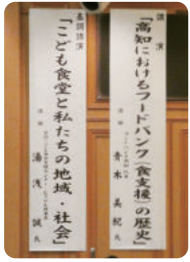 講演
「高知におけるフードバンク(食支援)の歴史」
講師
青木美紀氏
基調講演
「こども食堂と私たちの地域・社会」
講師
湯浅誠氏